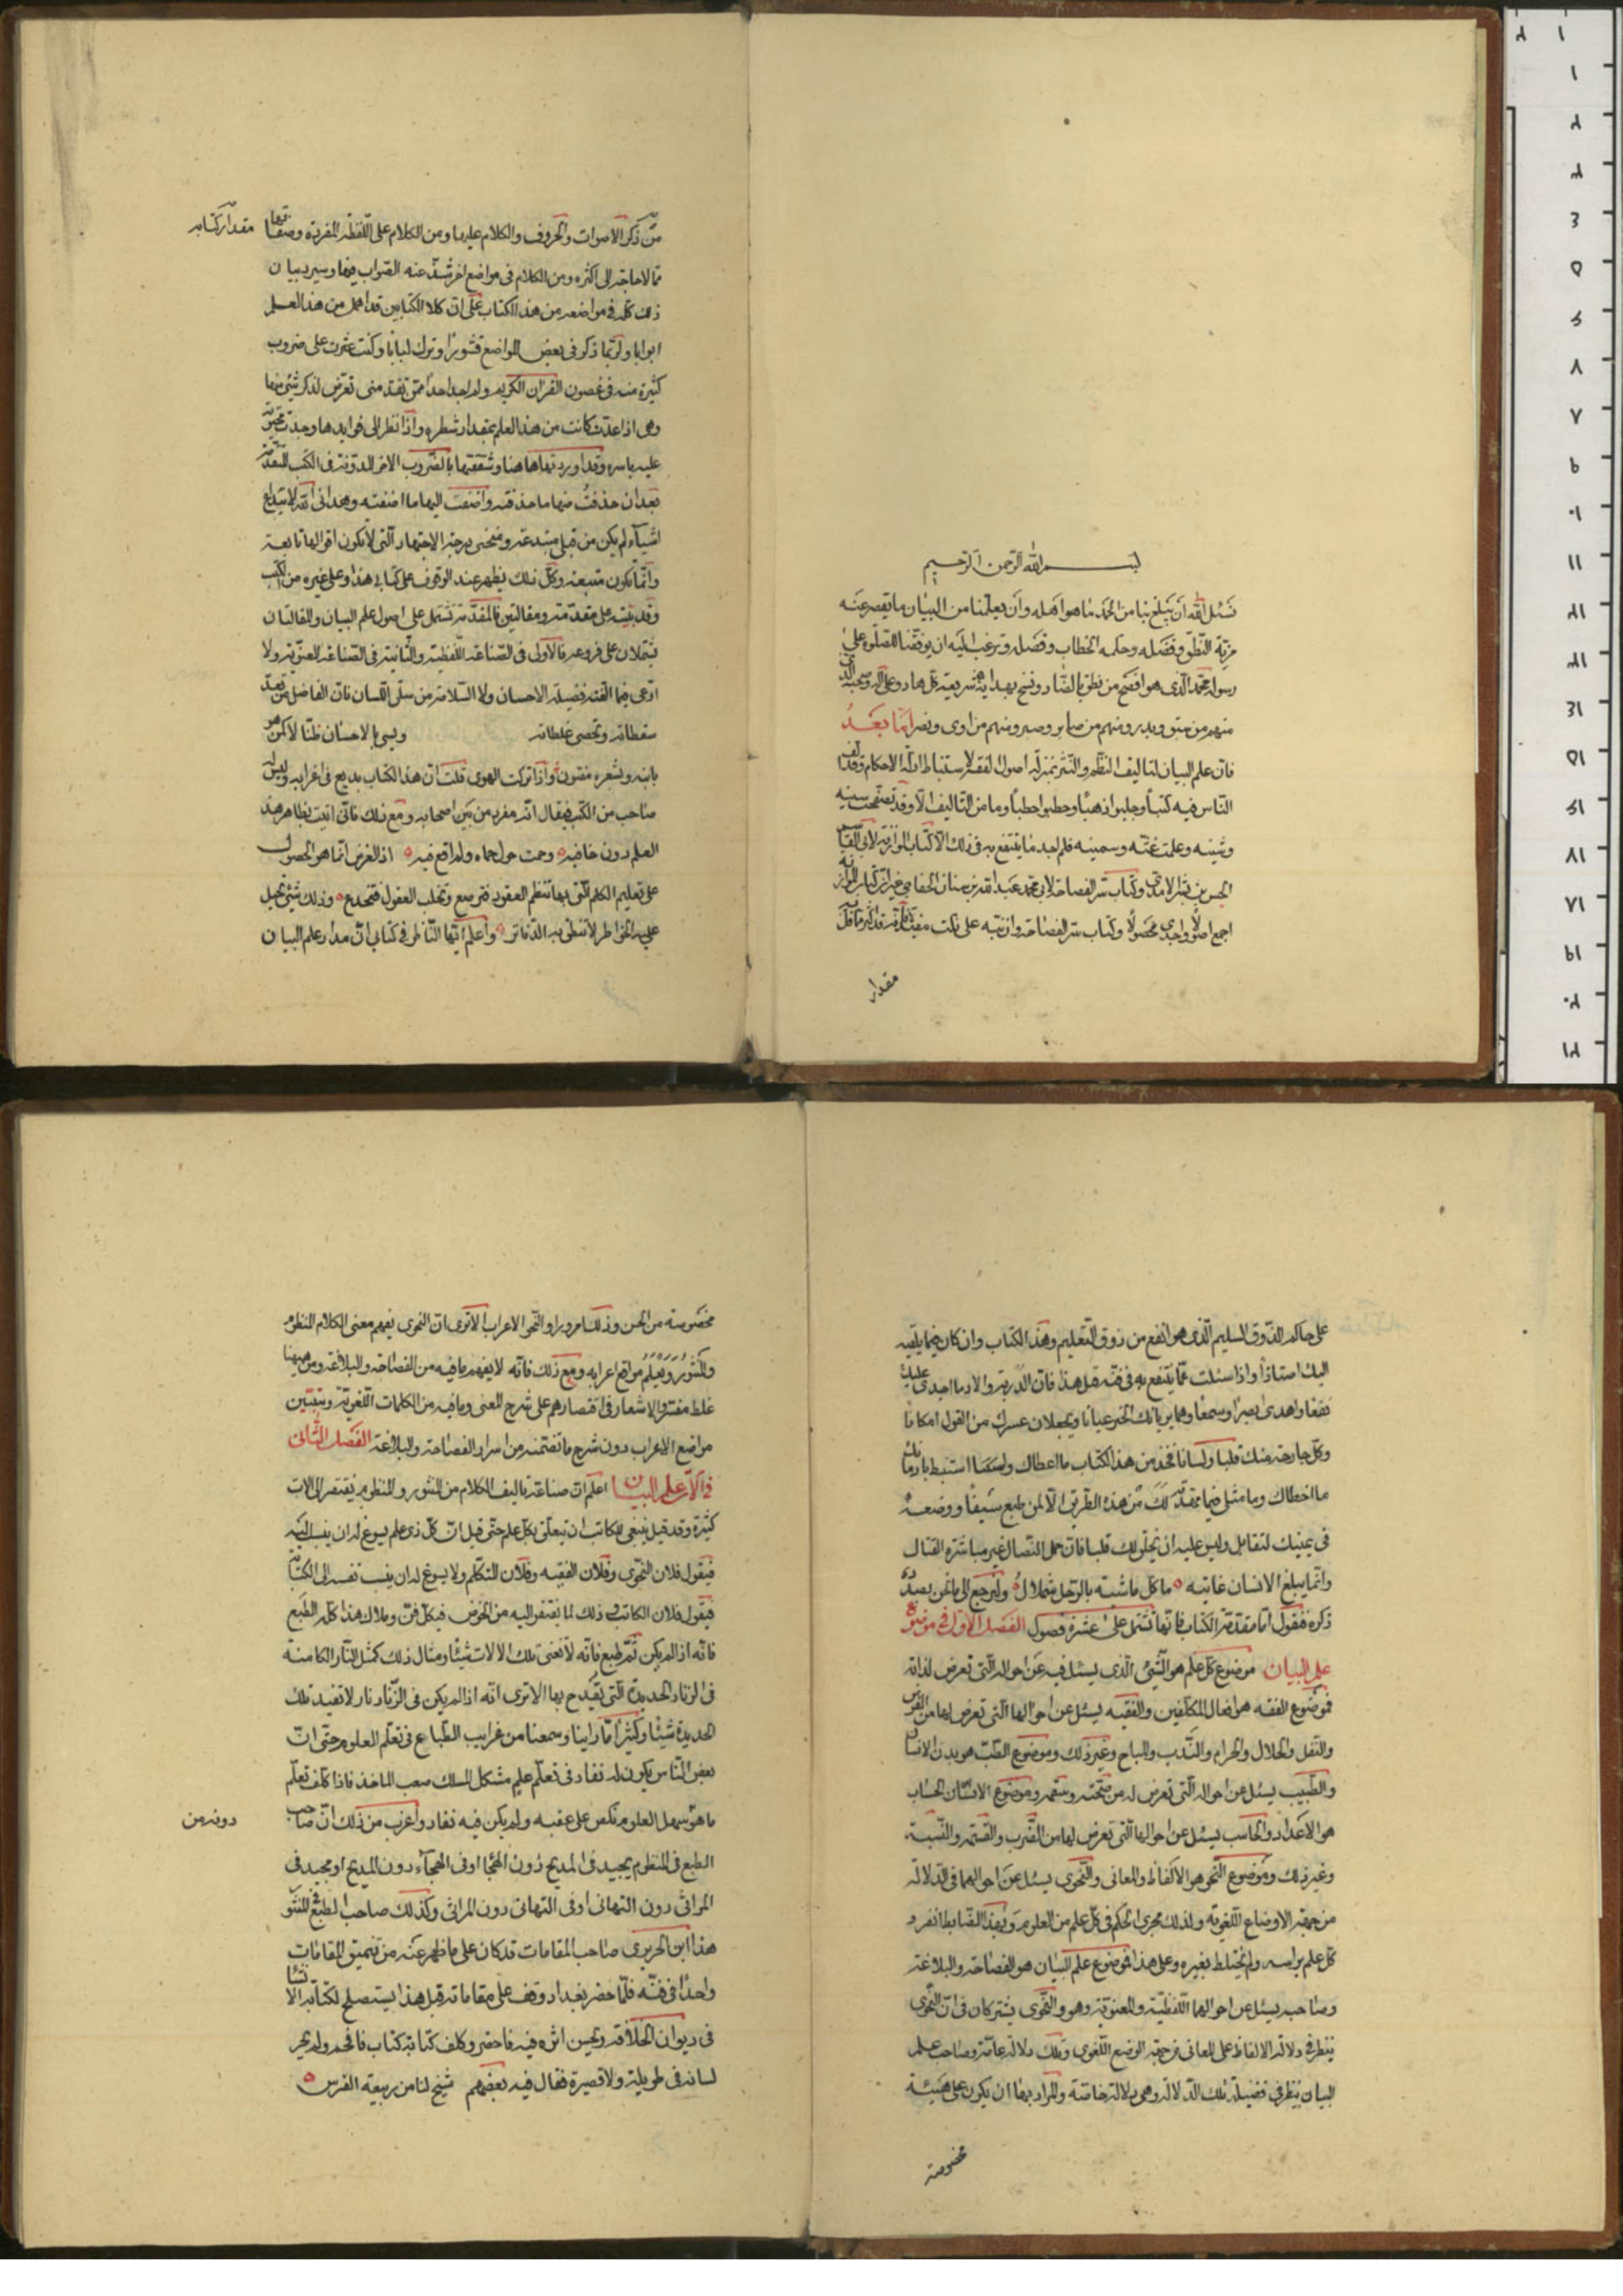 بسم الله الرحمن الرحيم
نسئل الله أن يبلغ بنا من الحمد ما هو اهله وأن يعلمنا من البيان ما يقصر عنه
مزية النطق وفضله وحكمة الخطاب وفصله ونرغب اليه ان يوفقنا للصلوة على
رسوله محمد الذى هو افصح من نطق بالضاد ونسخ بهداية شريعته كل هاد وعلى آله وصحبه الذين
منهم من سبق وبدر ومنهم من صابر وصبر ومنهم من اوى ونصر اما بعد
فان علم البيان لتاليف النظم والنثر بمنزلة اصول الفقه لاستنباط ادلة الاحكام وقد الف
الناس فيه كتبا وجلبوا ذهبا وحطبوا حطبا وما من تاليف الا وقد تصفحت سينه
وشينه وعلمت غثه وسمينه فلم اجد ما ينتفع به فى ذلك الا كتاب الموازنة لابى القاسم
الحسن بن بشر الامدى وكتاب سر الفصاحة لابى محمد عبد الله بن سنان الخفاجى غير ان كتاب الموازنة
اجمع اصولا واجدى محصولا وكتاب سر الفصاحة وان نبه على نكت منيرة فانه قد اكثر مما قل به
مقدار
مقدار كتابه
من ذكر الاصوات والحروف والكلام عليها ومن الكلام على اللفظة المفردة وصفاتها
مما لا حاجة الى اكثره ومن الكلام فى مواضع اخر شذ عنه الصواب فيها وسيرد بيان
ذلك كله فى مواضعه من هذا الكتاب على ان كلا الكتابين قد اهملا من هذا العلم
ابوابا ولربما ذكر فى بعض المواضع قشورا وترك لبابا وكنت عثرت على ضروب
كثيرة منه فى غصون القران الكريم ولم اجد احدا ممن تقدمنى تعرض لذكر شئ منها
وهى اذا عدت كانت من هذا العلم بمقدار شطره واذا نظر الى فوايدها وجدت محتوية
عليه باسره وقد اوردتها هاهنا وشفعتها بالضروب الاخر المدونة فى الكتب المتقدمة
بعد ان حذفت منها ما حذفته واضفت اليها ما اضفته وهدانى الله لابتداع
اشياء لم يكن من قبلى مبتدعة ومنحنى درجة الاجتهاد التى لا يكون اقوالها تابعة
وانما يكون متبعة وكل ذلك يظهر عند الوقوف على كتابى هذا وعلى غيره من الكتب
وقد بنيته على مقدمة ومقالتين فالمقدمة تشتمل على اصول علم البيان والمقالتان
يشتملان على فروعه فالاولى فى الصناعة اللفظية والثانية فى الصناعة المعنوية ولا
ادعى فيما الفته فضيلة الاحسان ولا السلامة من سلق اللسان فان الفاضل من تعد
سقطاته وتحصى غلطاته ويسئ بالاحسان ظنا لا كمن هو
بابنه وبشعره مفتون واذا تركت الهوى قلت ان هذا الكتاب بديع فى اغرابه وليس له
صاحب من الكتب فيقال انه مفرد من بين اصحابه ومع ذلك فانى اتيت بظاهر هذا
العلم دون خافيه وحمت حول حماه ولم اقع فيه اذ الغرض انما هو الحصول
على تعليم الكلم التى بها تنظم العقود فترصع وتخلب العقول فتخدع وذلك شئ تحيل
عليه الخواطر لا تنطق به الدفاتر واعلم ايها الناظر فى كتابى ان مدار علم البيان
على حاكم الذوق السليم الذى هو انفع من ذوق التعليم وهذا الكتاب وان كان فيما يلقيه
اليك استاذا واذا سئلت عما ينتفع به فى فنه قيل هذا فان الدربة والادمان اجدى عليك
نفعا واهدى بصرا وسمعا وهما يريانك الخبر عيانا ويجعلان عسرك من القول امكانا
وكل جارحة منك قلبا ولسانا فخذ من هذا الكتاب ما اعطاك واستنبط بادمانك
ما اخطاك وما مثلى فيما مهدته لك من هذه الطريق الا كمن طبع سيفا ووضعه
فى يمينك لتقاتل وليس عليه ان يخلق لك قلبا فان حمل النصال غير مباشرة القتال
وانما يبلغ الانسان غايته ما كل ماشية بالرحل شملال ولنرجع الى ما نحن بصدد
ذكره فنقول اما مقدمة الكتاب فانها تشتمل على عشرة فصول الفصل الاول فى موضوع
علم البيان موضوع كل علم هو الشئ الذى يسئل فيه عن احواله التى تعرض لذاته
فموضوع الفقه هو افعال المكلفين والفقيه يسئل عن احوالها التى تعرض لها من الفرض
والنفل والحلال والحرام والندب والمباح وغير ذلك وموضوع الطب هو بدن الانسان
والطبيب يسئل عن احواله التى تعرض له من صحته وسقمه وموضوع الحساب
هو الاعداد والحاسب يسئل عن احوالها التى تعرض لها من الضرب والقسمة والنسبة
وغير ذلك وموضوع النحو هو الالفاظ والمعانى والنحوى يسئل عن احوالهما فى الدلالة
من جهة الاوضاع اللغوية ولذلك مجرى الحكم فى كل علم من العلوم وبهذا الضابط انفرد
كل علم براسه ولم يختلط بغيره وعلى هذا فموضوع علم البيان هو الفصاحة والبلاغة
وصاحبه يسئل عن احوالهما اللفظية والمعنوية وهو والنحوى يشتركان فى ان النحوى
ينظر فى دلالة الالفاظ على المعانى من جهة الوضع اللغوى وتلك دلالة عامة وصاحب علم
البيان ينظر فى فضيلة تلك الدلالة وهى دلالة خاصة والمراد بها ان يكون على هيئة
مخصوصة
مخصوصة من الحسن وذلك امر وراء النحو والاعراب الا ترى ان النحوى يفهم معنى الكلام المنظوم
والمنثور ويعلم مواقع اعرابه ومع ذلك فانه لا يفهم ما فيه من الفصاحة والبلاغة ومن هيهنا
غلط مفسرو الاشعار فى اقتصارهم على شرح المعنى وما فيه من الكلمات اللغوية وتبيين
مواضع الاعراب دون شرح ما تضمنته من اسرار الفصاحة والبلاغة الفصل الثانى
فى آلات علم البيان اعلم ان صناعة تاليف الكلام من المنثور والمنظوم يفتقر الى الات
كثيرة وقد قيل ينبغى للكاتب ان يتعلق بكل علم حتى قيل ان كل ذى علم يسوغ له ان ينسب اليه
فيقول فلان النحوى وفلان الفقيه وفلان المتكلم ولا يسوغ له ان ينسب نفسه الى الكتابة
فيقول فلان الكاتب ذلك لما يفتقر اليه من الخوض فى كل فن وملاك هذا كله الطبع
فانه اذا لم يكن ثم طبع فانه لا تغنى تلك الالات شيئا ومثال ذلك كمثل النار الكامنة
فى الزناد والحديدة التى يقدح بها الا ترى انه اذا لم يكن فى الزناد نار لا تفيد تلك
الحديدة شيئا وكثيرا ما راينا وسمعنا من غرايب الطباع فى تعلم العلوم حتى ان
بعض الناس يكون له نفاد فى تعلم علم مشكل المسلك صعب الماخذ فاذا كلف تعلم
ما هو سهل العلوم نكص على عقبه ولم يكن فيه نفاد واغرب من ذلك ان صاحب
دونه من
الطبع فى المنظوم يجيد فى المديح دون الهجا او فى الهجاء دون المديح او يجيد فى
المراثى دون التهانى او فى التهانى دون المراثى وكذلك صاحب الطبع فى المنثور
هذا ابن الحريرى صاحب المقامات قد كان على ما ظهر عنه من تنميق المقامات
واحدا فى فنه فلما حضر بغداد وقف على مقاماته قيل هذا يستصلح لكتابة الانشا
فى ديوان الخلافة ويحسن اثره فيه فاحضر وكلف كتابة كتاب فافحم ولم يجر
لسانه فى طويلة ولا قصيرة فقال فيه بعضهم شيخ لنا من ربيعة الفرس